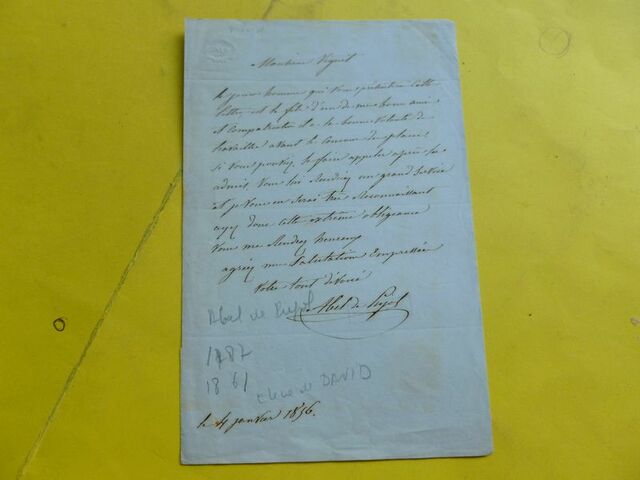 Monsieur
le jeune homme qui vous présentera cette
lettre est le fils d'un de mes bons amis
et Compatriotes il a la bonne volonté de
travailler avant le Concours des places
si vous pouviez le faire appeler après les
admis vous lui rendriez un grand service
et je vous en serai très reconnaissant
ayez donc cette extrême obligeance
vous me rendrez heureux
agréez mes salutations Empressées
votre tout dévoué
Abel de Pujol
Abel de Pujol
1787
1861
élève de DAVID
le 4 janvier 1856.